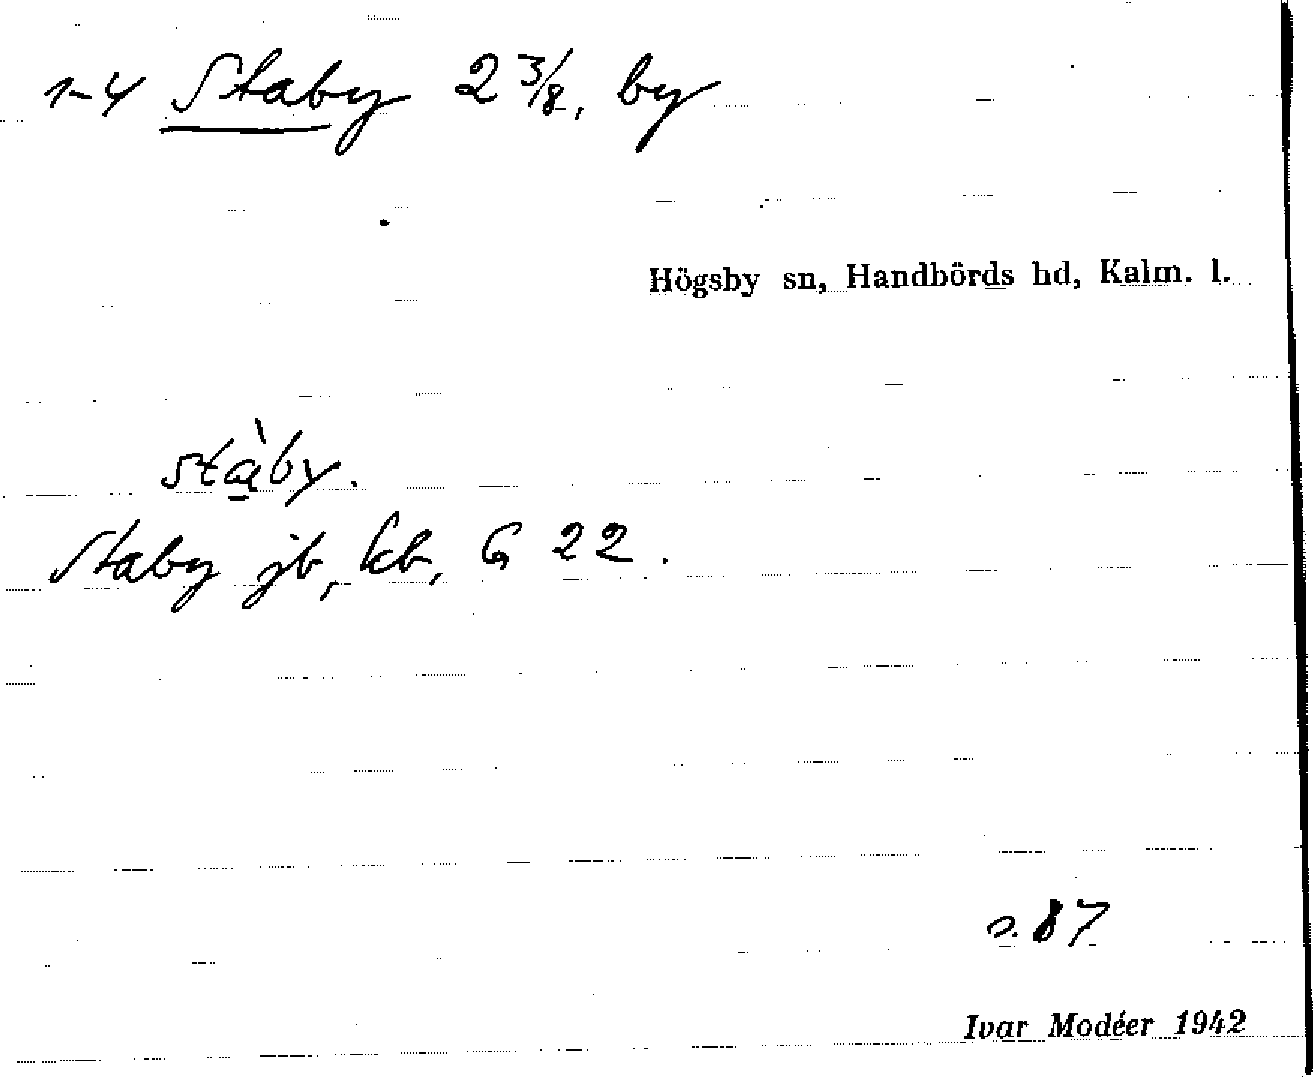 1-4 Staby 2 3/8, by
Högsby sn, Handbörds hd, Kalm. l.
stạ̀by.
Staby jb, kb, G 22.
s. 87
Ivar Modéer 1942